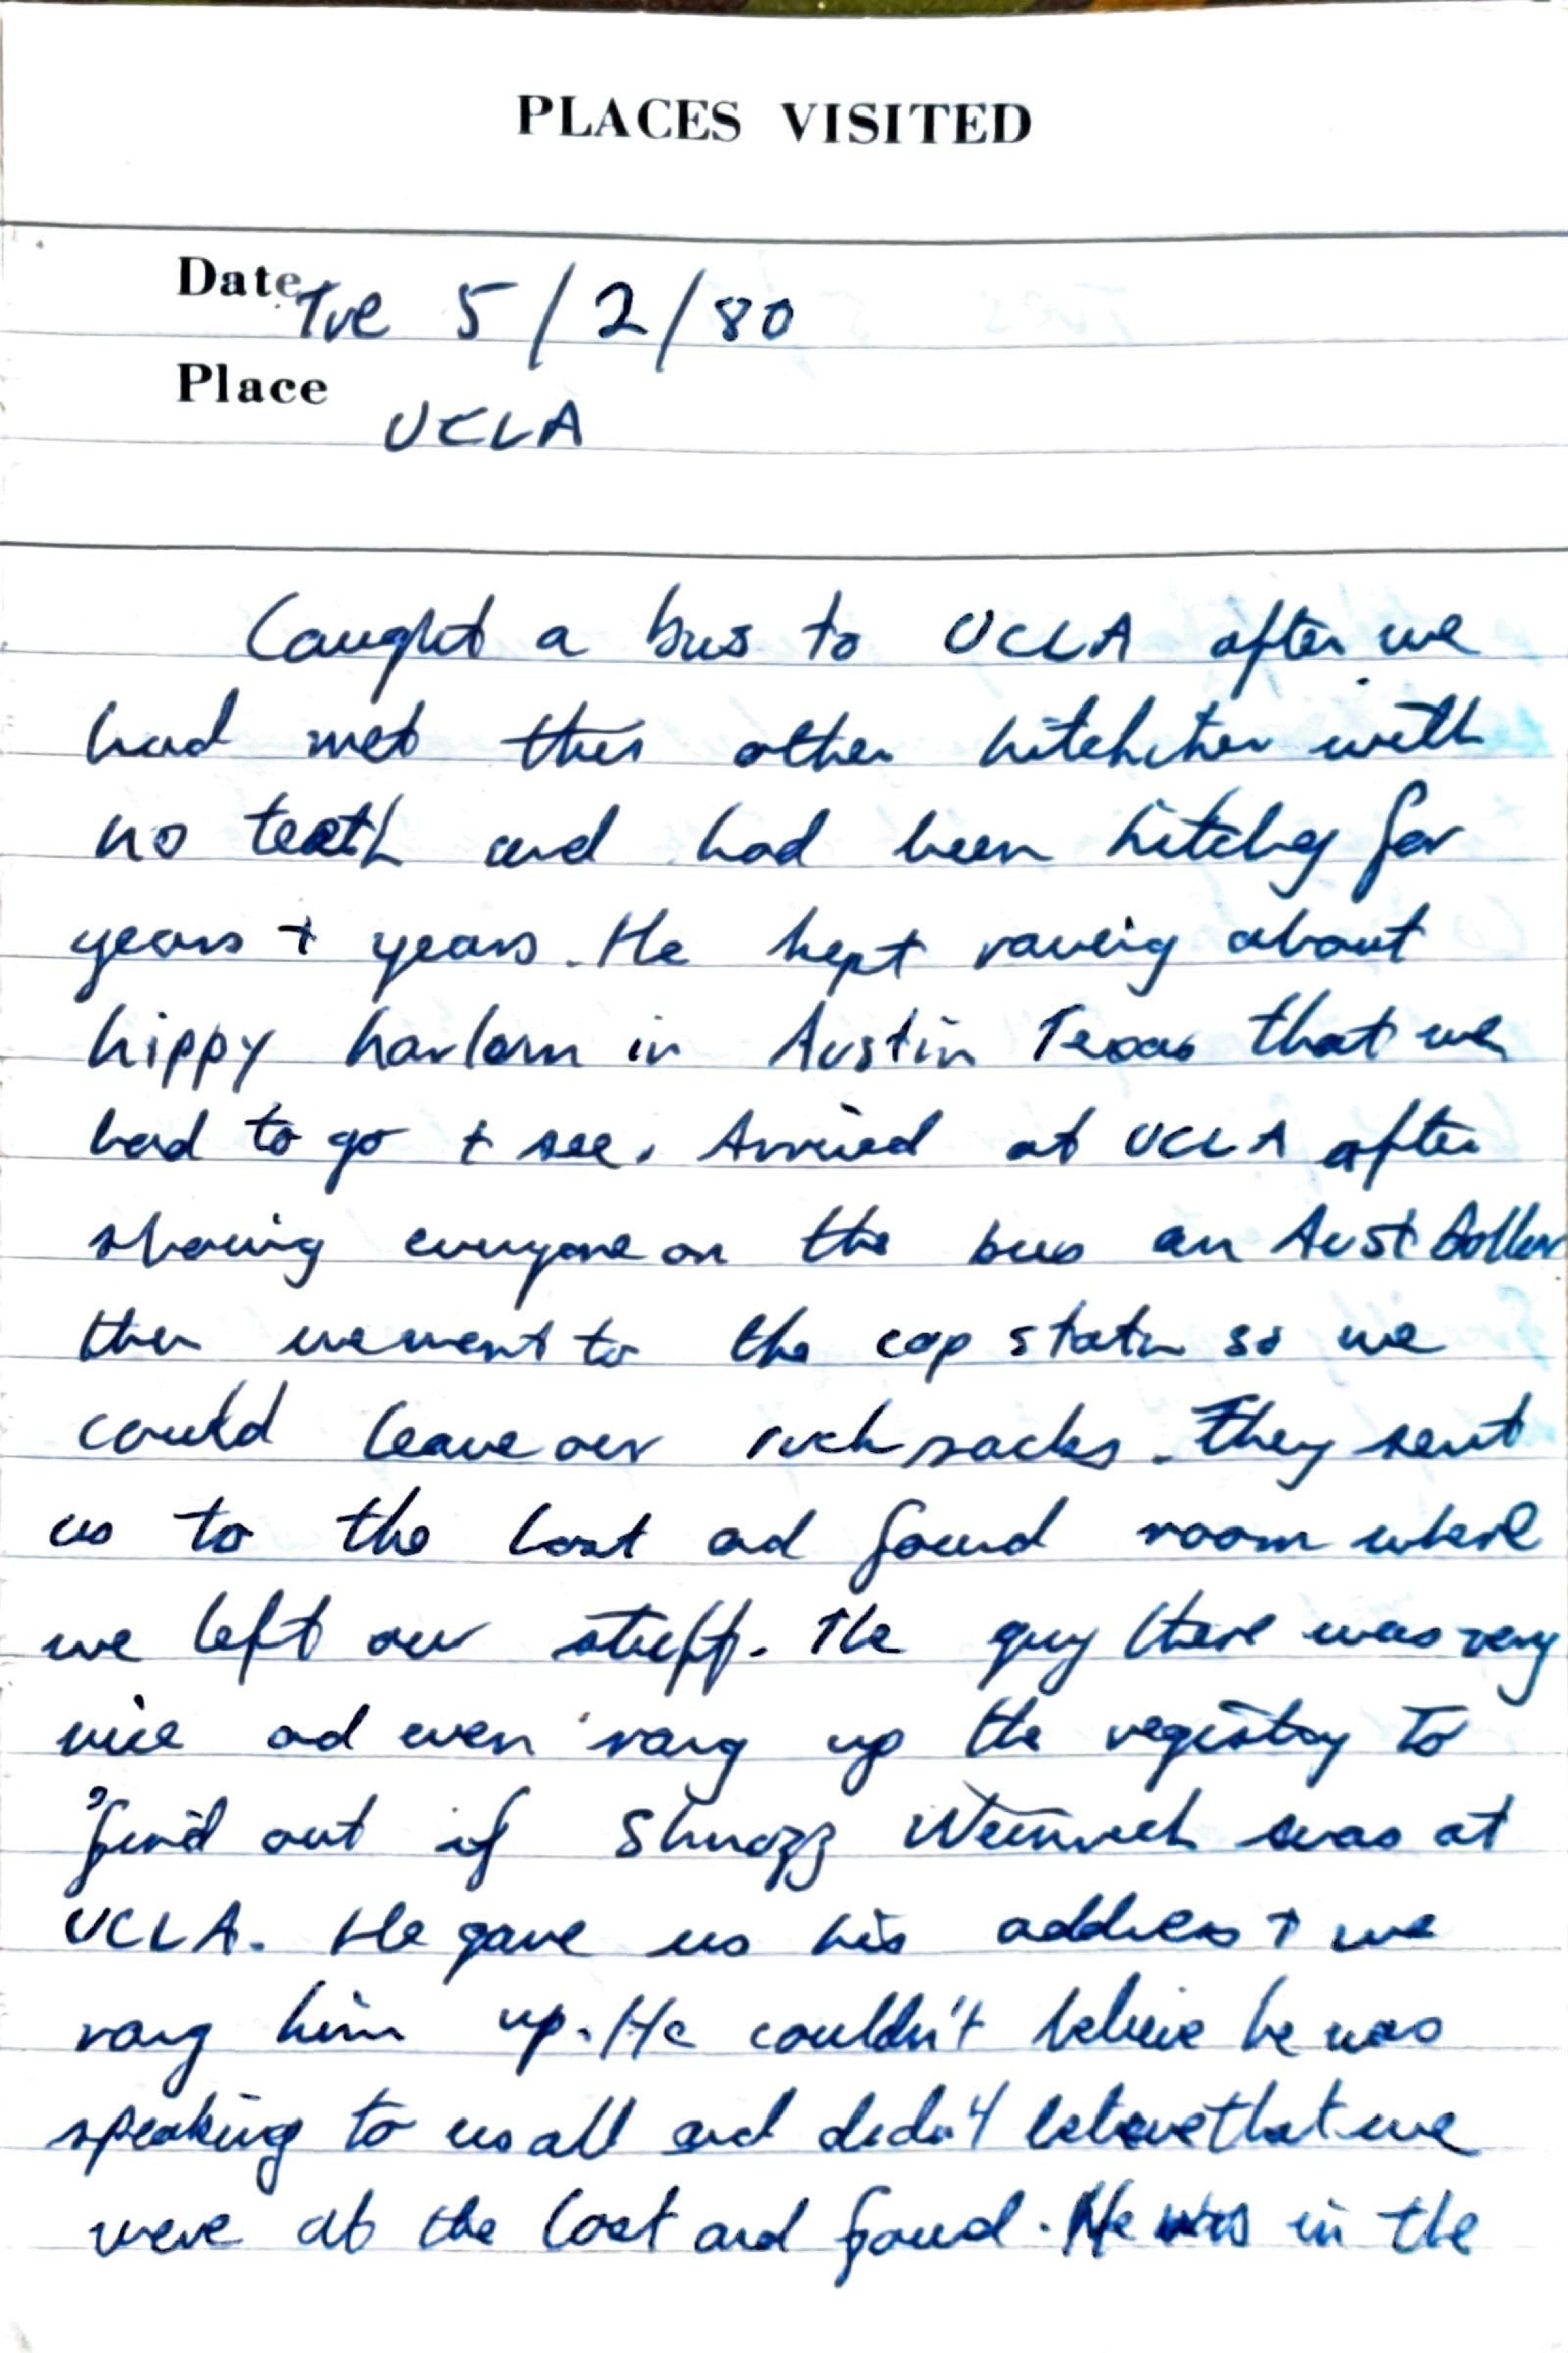 PLACES VISITED
Date Tue 5/2/80
Place UCLA
Caught a bus to UCLA after we
had met this other hitchiher with
no teeth and had been hitchg for
years + years. He kept raveig about
hippy harlem in Austin Texas that we
had to go + see. Arrived at UCLA after
showing everyone on the bus an Aust Dollar
then we went to the cop statn so we
could leave our ruck sacks. They sent
us to the lost ad found room where
we left our stuff. The guy there was very
nice ad even rang up the registry to
find out if Shnozz was at
UCLA. He gave us his address + we
rang him up. He couldn't believe he was
speaking to us all and didn't believe that we
were at the lost and found. He was in the